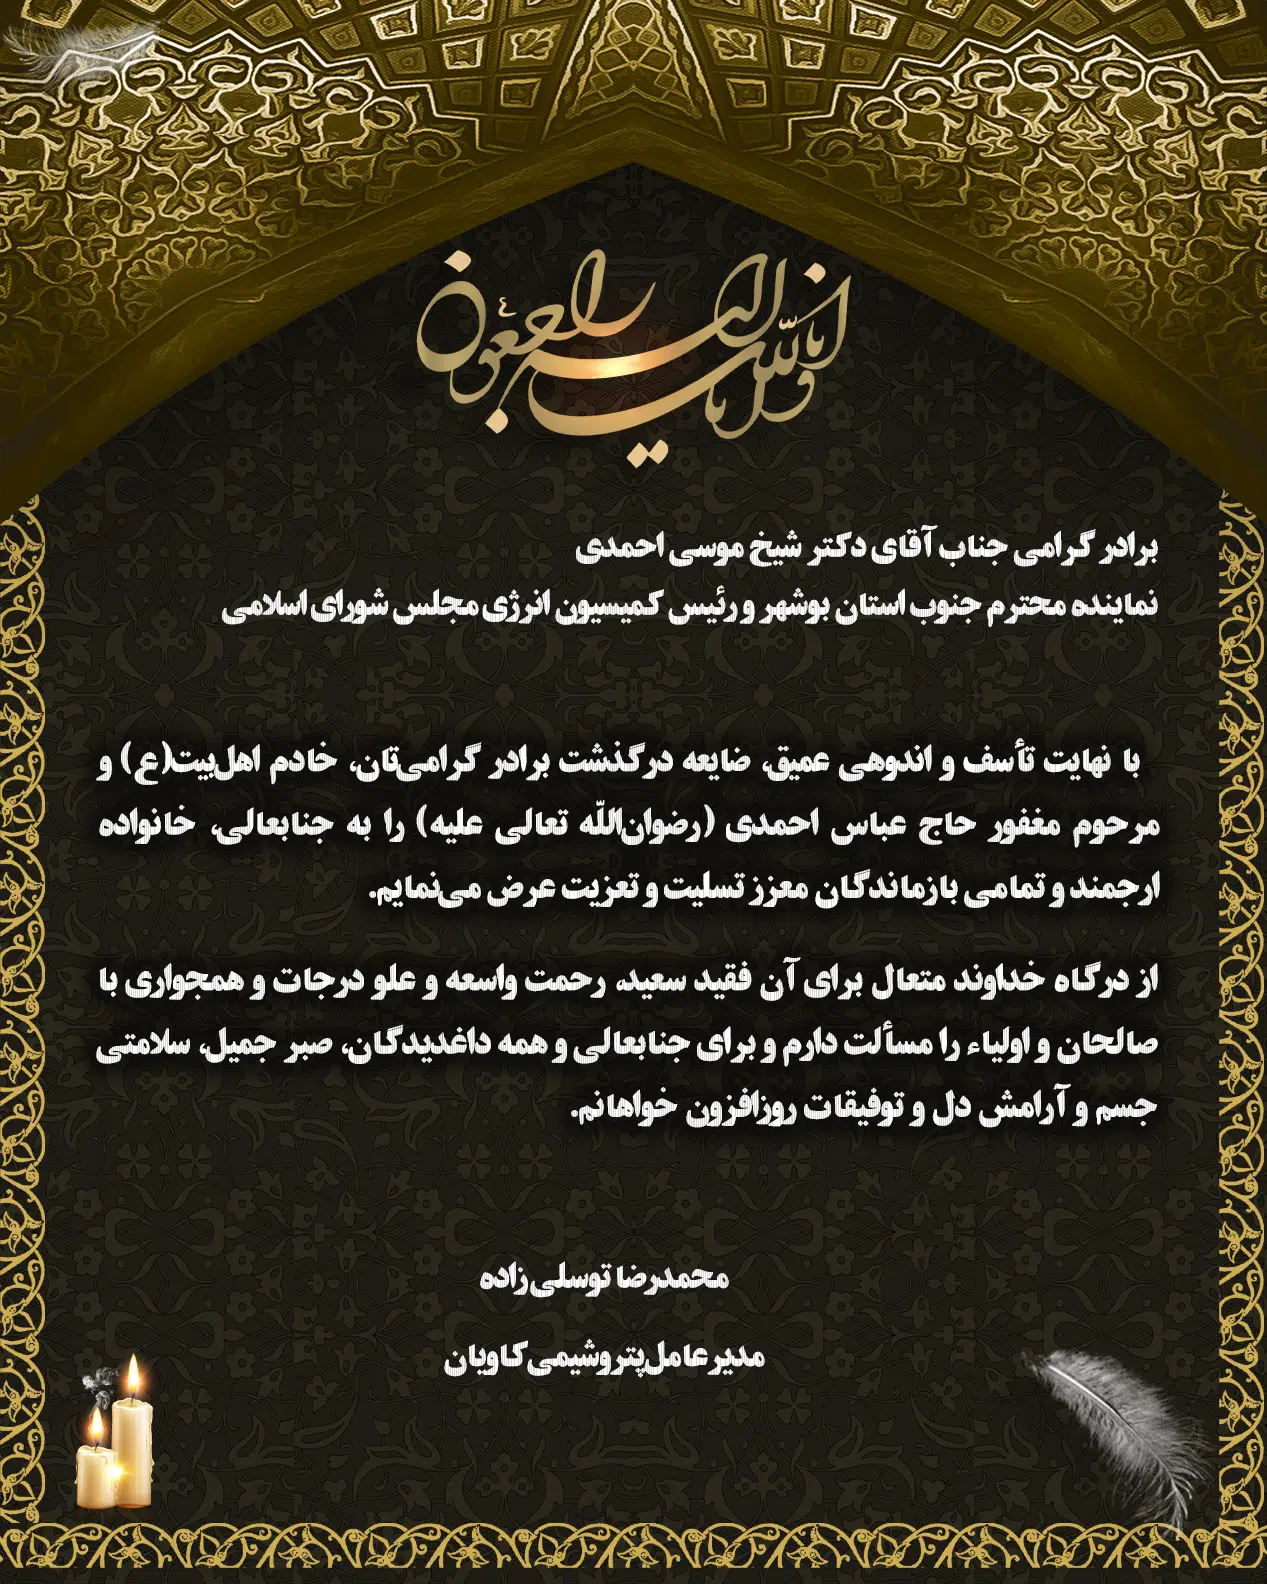 انا لله و انا الیه راجعون
برادر گرامی جناب آقای دکتر شیخ موسی احمدی
نماینده محترم جنوب استان بوشهر و رئیس کمیسیون انرژی مجلس شورای اسلامی
با نهایت تأسف و اندوهی عمیق، ضایعه درگذشت برادر گرامی‌تان، خادم اهل‌بیت(ع) و
مرحوم مغفور حاج عباس احمدی (رضوان‌اللّه تعالی علیه) را به جنابعالی، خانواده
ارجمند و تمامی بازماندگان معزز تسلیت و تعزیت عرض می‌نمایم.
از درگاه خداوند متعال برای آن فقید سعید، رحمت واسعه و علو درجات و همجواری با
صالحان و اولیاء را مسألت دارم و برای جنابعالی و همه داغدیدگان، صبر جمیل، سلامتی
جسم و آرامش دل و توفیقات روزافزون خواهانم.
محمدرضا توسلی‌زاده
مدیرعامل پتروشیمی کاویان